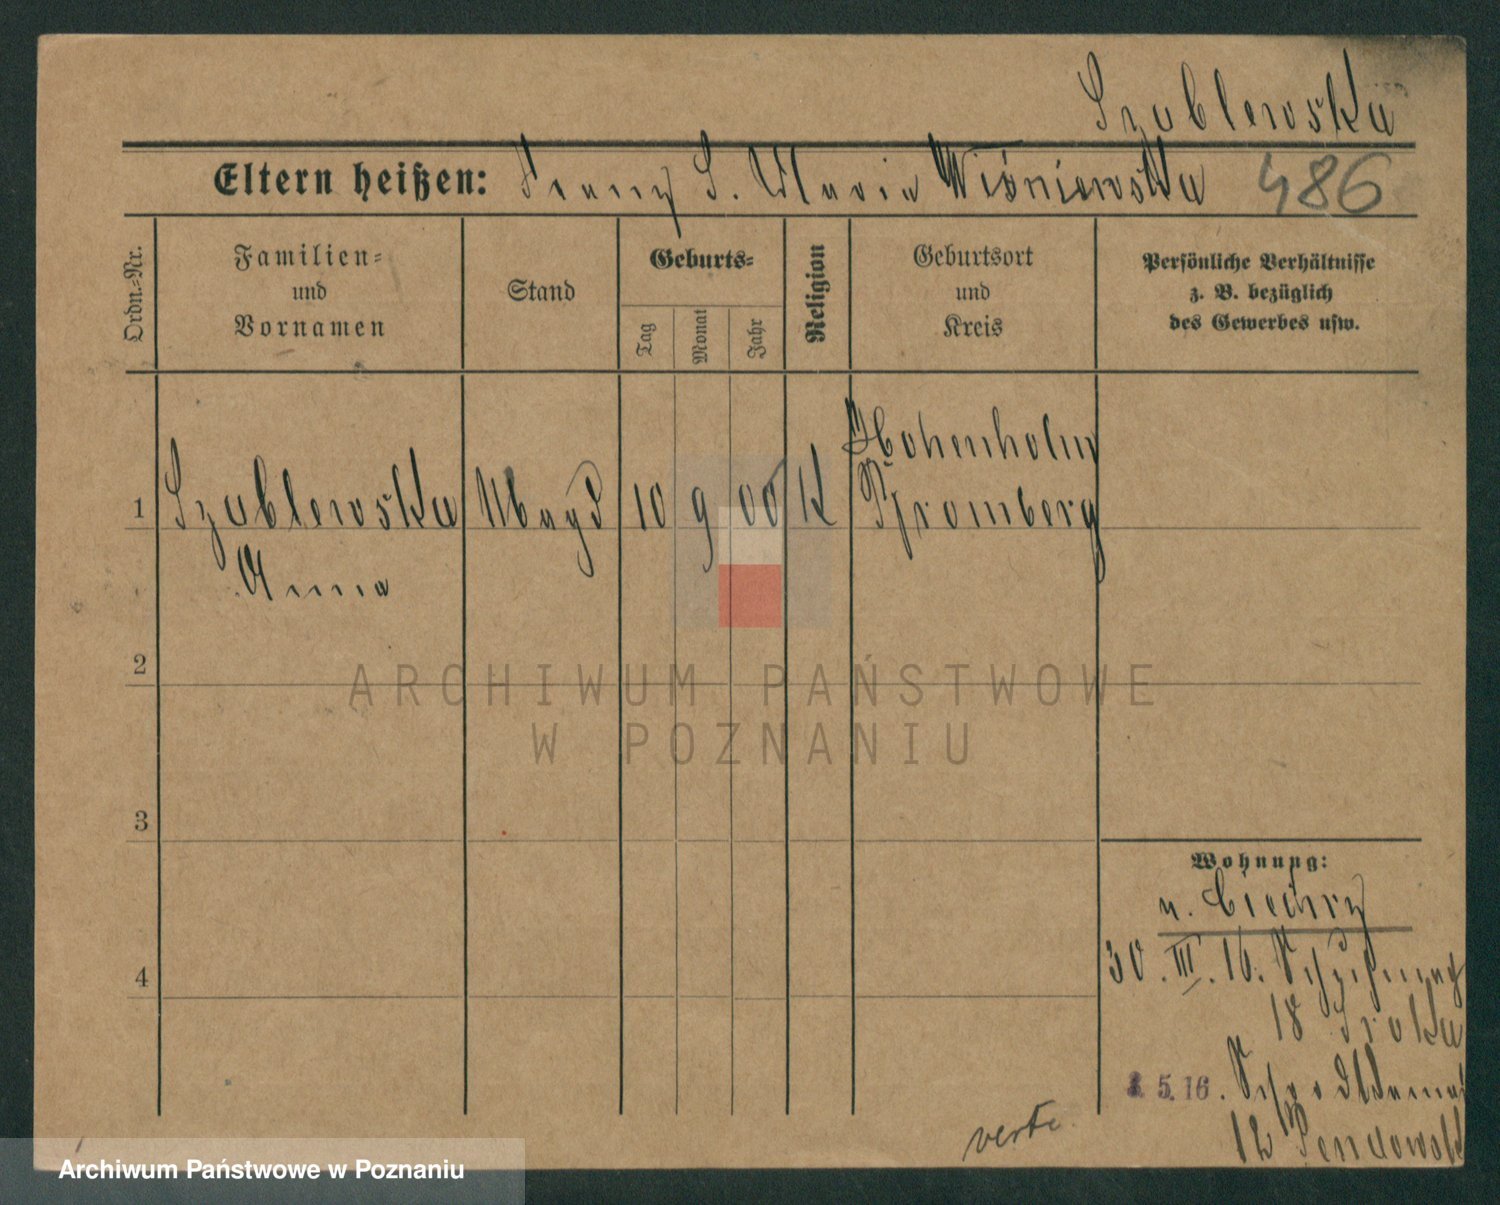 Szablewska
Eltern heißen: Franz S. Maria Wiśniewska 486
Ordn.-Nr.
Familien-
und
Vornamen
Stand
Geburts-
Tag
Monat
Jahr
Religion
Geburtsort
und
Kreis
Persönliche Verhältnisse
z. B. bezüglich
des Gewerbes usw.
Hohenholm
1 Szablewska Magd 10 9 00 K Bromberg
Anna
2
ARCHIWUM PAŃSTWOWE
W POZNANIU
3
Wohnung:
n. Ciechrz
30. III. 16.
4
18
5.16.
12
verte
Archiwum Państwowe w Poznaniu